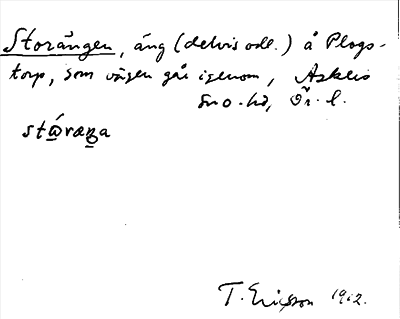 Storängen, äng (delvis odl.) å Plogs-
torp, som vägen går igenom, Askers
sn o. hd, Ör. l.
T. Ericsson 1912.